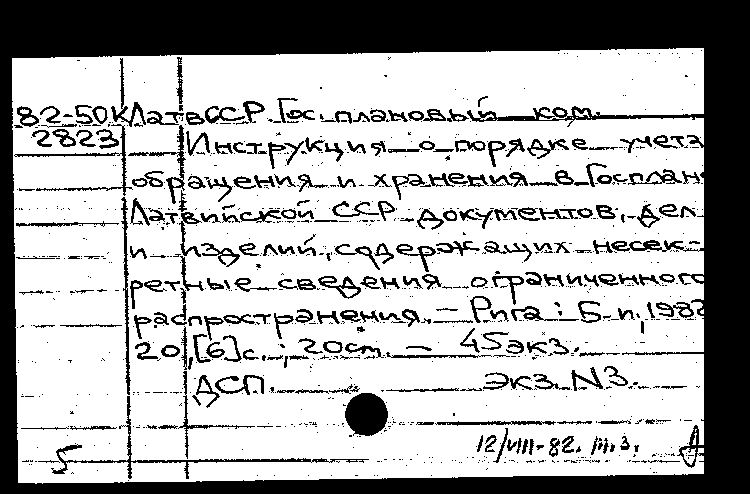 82-50К ЛатвССР. Гос. плановый ком.
2823 Инструкция о порядке учета
обращения и хранения в Госплан
Латвийской ССР документов, дел
и изделий, содержащих несек-
ретные сведения ограниченного
распространения. – Рига: Б. и., 1982
20, [6] с.; 20 см. – 45 экз.
ДСП. Экз. N3.
12/VIII-82. т.з.
5